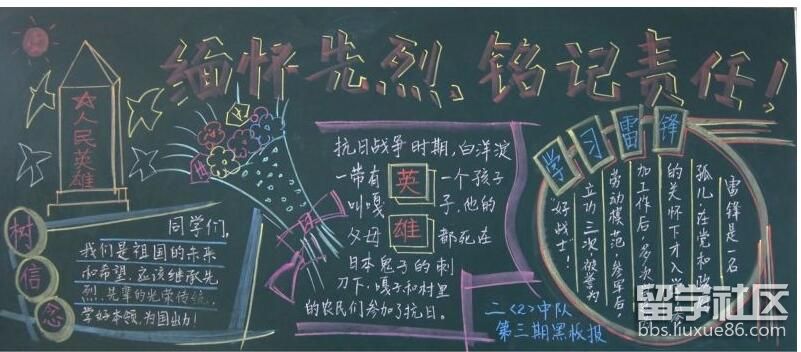 缅怀先烈、铭记责任！
人民英雄
树信念
同学们，
我们是祖国的未来
和希望，应该继承先
烈、先辈的光荣传统，
学好本领，为国出力！
抗日战争时期，白洋淀
一带有 一个孩子
叫嘎 子，他的
父母 都死在
英雄
日本鬼子的刺
刀下，嘎子和村里
的农民们参加了抗日。
学习雷锋
雷锋是一名
孤儿，在党和政
的关怀下才入
加工作后，多次
劳动模范，参军后，
立功三次，被誉为
“好战士”！
二〈2〉中队
第三期黑板报
留学社区
bbs.liuxue86.com